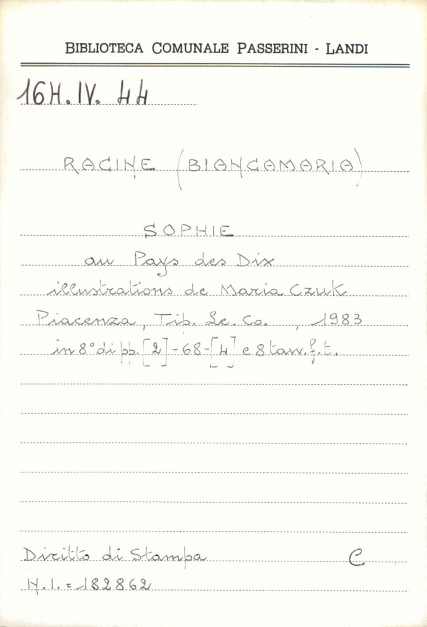 BIBLIOTECA COMUNALE PASSERINI - LANDI
16H.IV. 44
RACINE (BIANCAMARIA)
SOPHIE
au Pays des Dix
illustrations de Maria Czuk
Piacenza, Tip. Le. Co. , 1983
in 8° di pp. [2]-68-[4] e 8 tav. f.t.
Diritto di Stampa C
N.I. = 182862